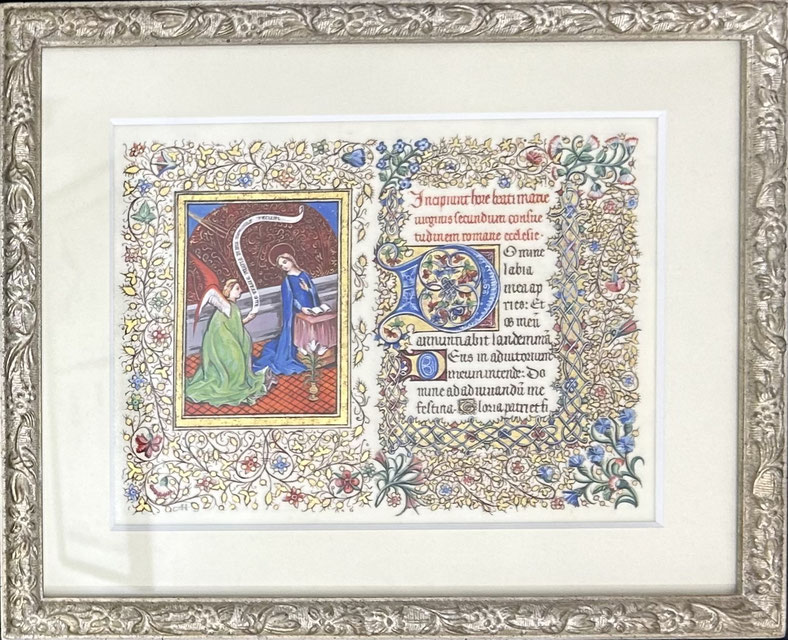 Incipiunt hore beati marie
virginis secundum consue
tudinem romane ecclesie·
Domine
labia
mea ap
ries: Et
os meū
annuntiabit laudem tuā
Deus in adiutorium
meum intende: Do
mine ad adiuvandū me
festina· Gloria patri et fi